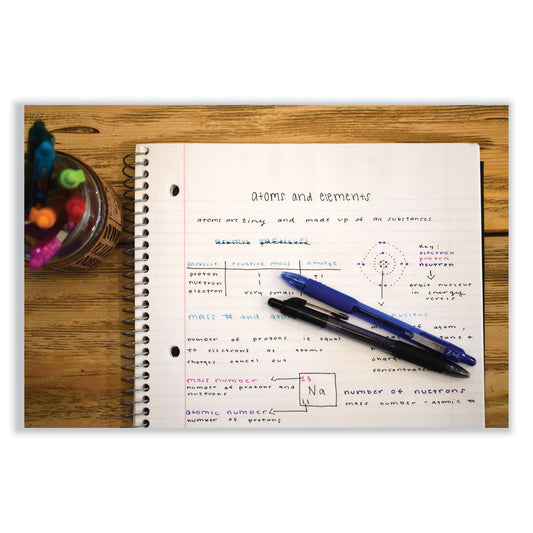 atoms and elements
atoms are tiny and made up of all substances
particle relative mass charge
proton 1 +1
nuetron 1
electron very small
Key:
electron
proton
nuetron
orbit nucleus
in energy
mass # and atom
nucleus
of atom,
number of protons is equal
to electrons of atoms
charges cancel out
mass number
number of protons and
nuetrons
23
Na
11
number of nuetrons
mass number - atomic #
atomic number
number of protons